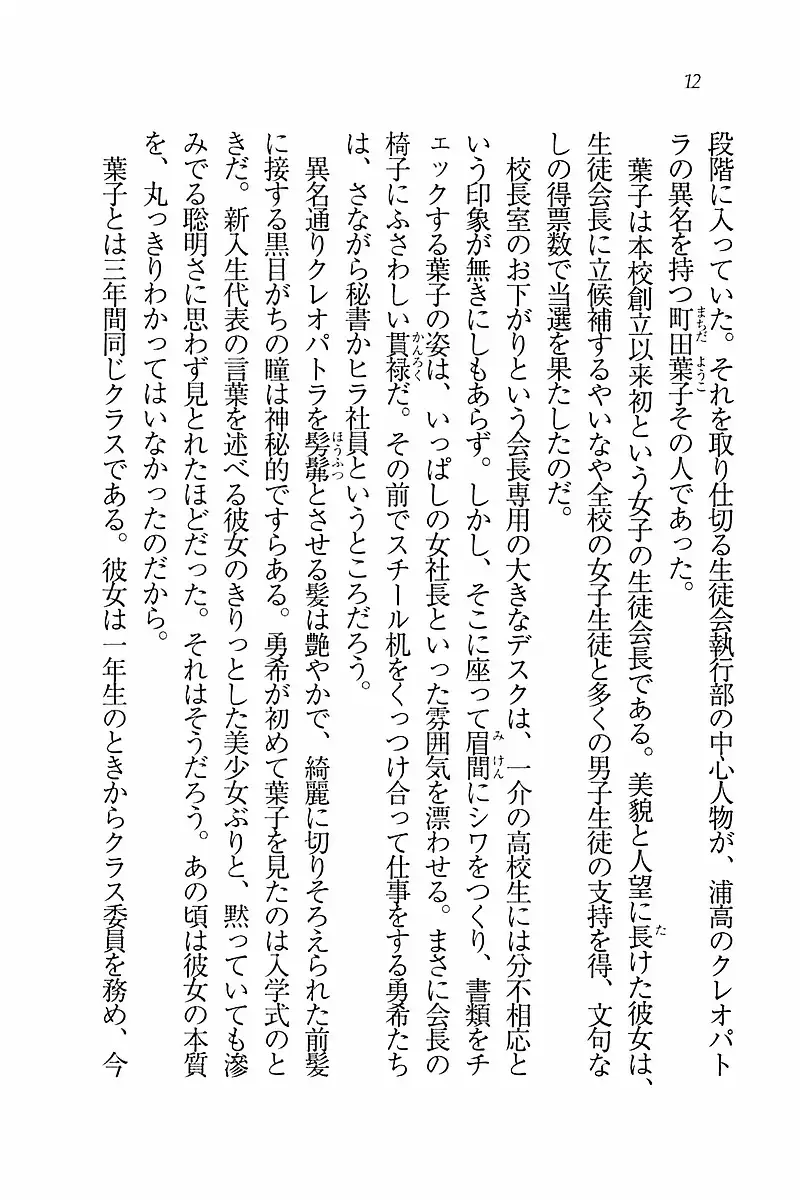 12
段階に入っていた。それを取り仕切る生徒会執行部の中心人物が、浦高のクレオパト
ラの異名を持つ町田葉子その人であった。
まちだ ようこ
葉子は本校創立以来初という女子の生徒会長である。美貌と人望に長けた彼女は、
た
生徒会長に立候補するやいなや全校の女子生徒と多くの男子生徒の支持を得、文句な
しの得票数で当選を果たしたのだ。
校長室のお下がりという会長専用の大きなデスクは、一介の高校生には分不相応と
いう印象が無きにしもあらず。しかし、そこに座って眉間にシワをつくり、書類をチ
みけん
ェックする葉子の姿は、いっぱしの女社長といった雰囲気を漂わせる。まさに会長の
椅子にふさわしい貫禄だ。その前でスチール机をくっつけ合って仕事をする勇希たち
かんろく
は、さながら秘書かヒラ社員というところだろう。
異名通りクレオパトラを髣髴とさせる髪は艶やかで、綺麗に切りそろえられた前髪
ほうふつ
に接する黒目がちの瞳は神秘的ですらある。勇希が初めて葉子を見たのは入学式のと
きだ。新入生代表の言葉を述べる彼女のきりっとした美少女ぶりと、黙っていても滲
みでる聡明さに思わず見とれたほどだった。それはそうだろう。あの頃は彼女の本質
を、丸っきりわかってはいなかったのだから。
葉子とは三年間同じクラスである。彼女は一年生のときからクラス委員を務め、今